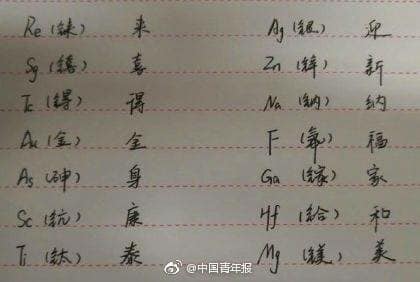 Re (铼) 来 Ag (银) 迎
Sg (𬭳) 喜 Zn (锌) 新
Tc (锝) 得 Na (钠) 纳
Au (金) 全 F (氟) 福
As (砷) 身 Ga (镓) 家
Sc (钪) 康 Hf (铪) 和
Ti (钛) 泰 Mg (镁) 美
@中国青年报